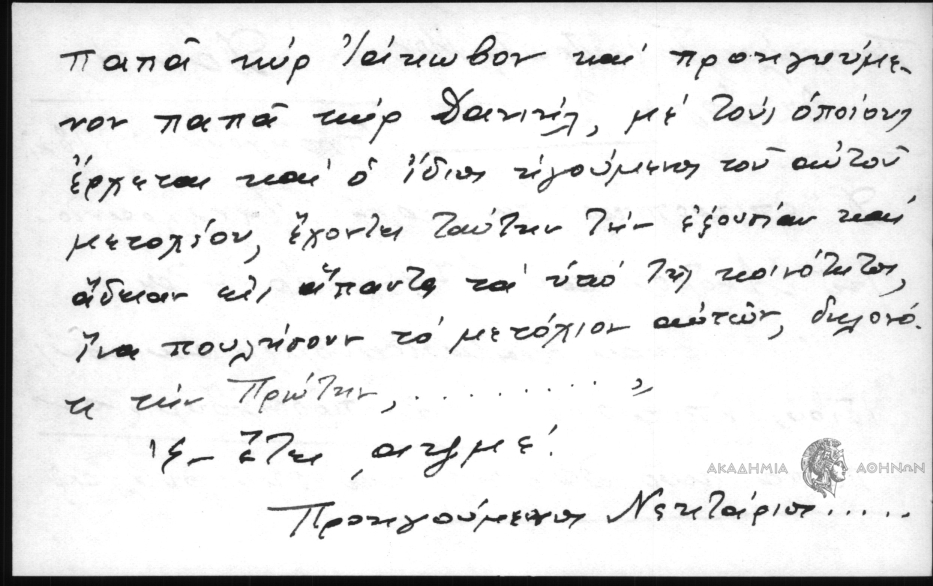 παπᾶ κύρ Ἰάκωβον καί προηγούμε-
νον παπᾶ κύρ Δανιήλ, μέ τούς ὁποίους
ἔρχεται καί ὁ ἴδιος ἡγούμενος τοῦ αὐτοῦ
μετοχίου, ἔχοντες ταύτην τήν ἐξουσίαν καί
ἄδειαν εἰς ἅπαντα τά ὑπό τῆς κοινότητος,
ἵνα πουλήσουν τό μετόχιον αὐτῶν, δηλονό-
τι τήν Πρώτην, . . . . . . . . . . . »
Ἐν ἔτει ͵αψμε΄.
Προηγούμενος Νεκτάριος.....
ΑΚΑΔΗΜΙΑ ΑΘΗΝΩΝ